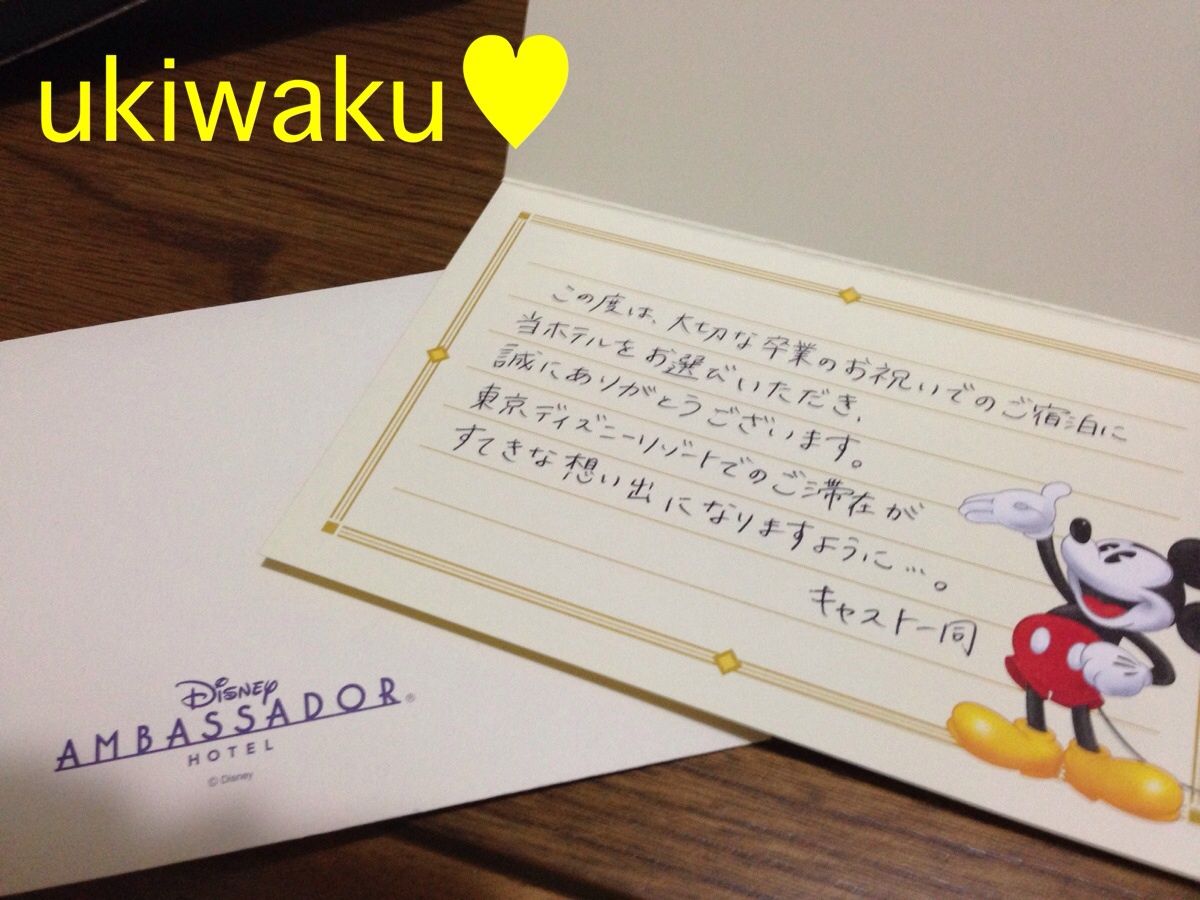 ukiwaku♥
この度は、大切な卒業のお祝いでのご宿泊に
当ホテルをお選びいただき、
誠にありがとうございます。
東京ディズニーリゾートでのご滞在が
すてきな想い出になりますように…。
キャスト一同
Disney
AMBASSADOR®
HOTEL
© Disney